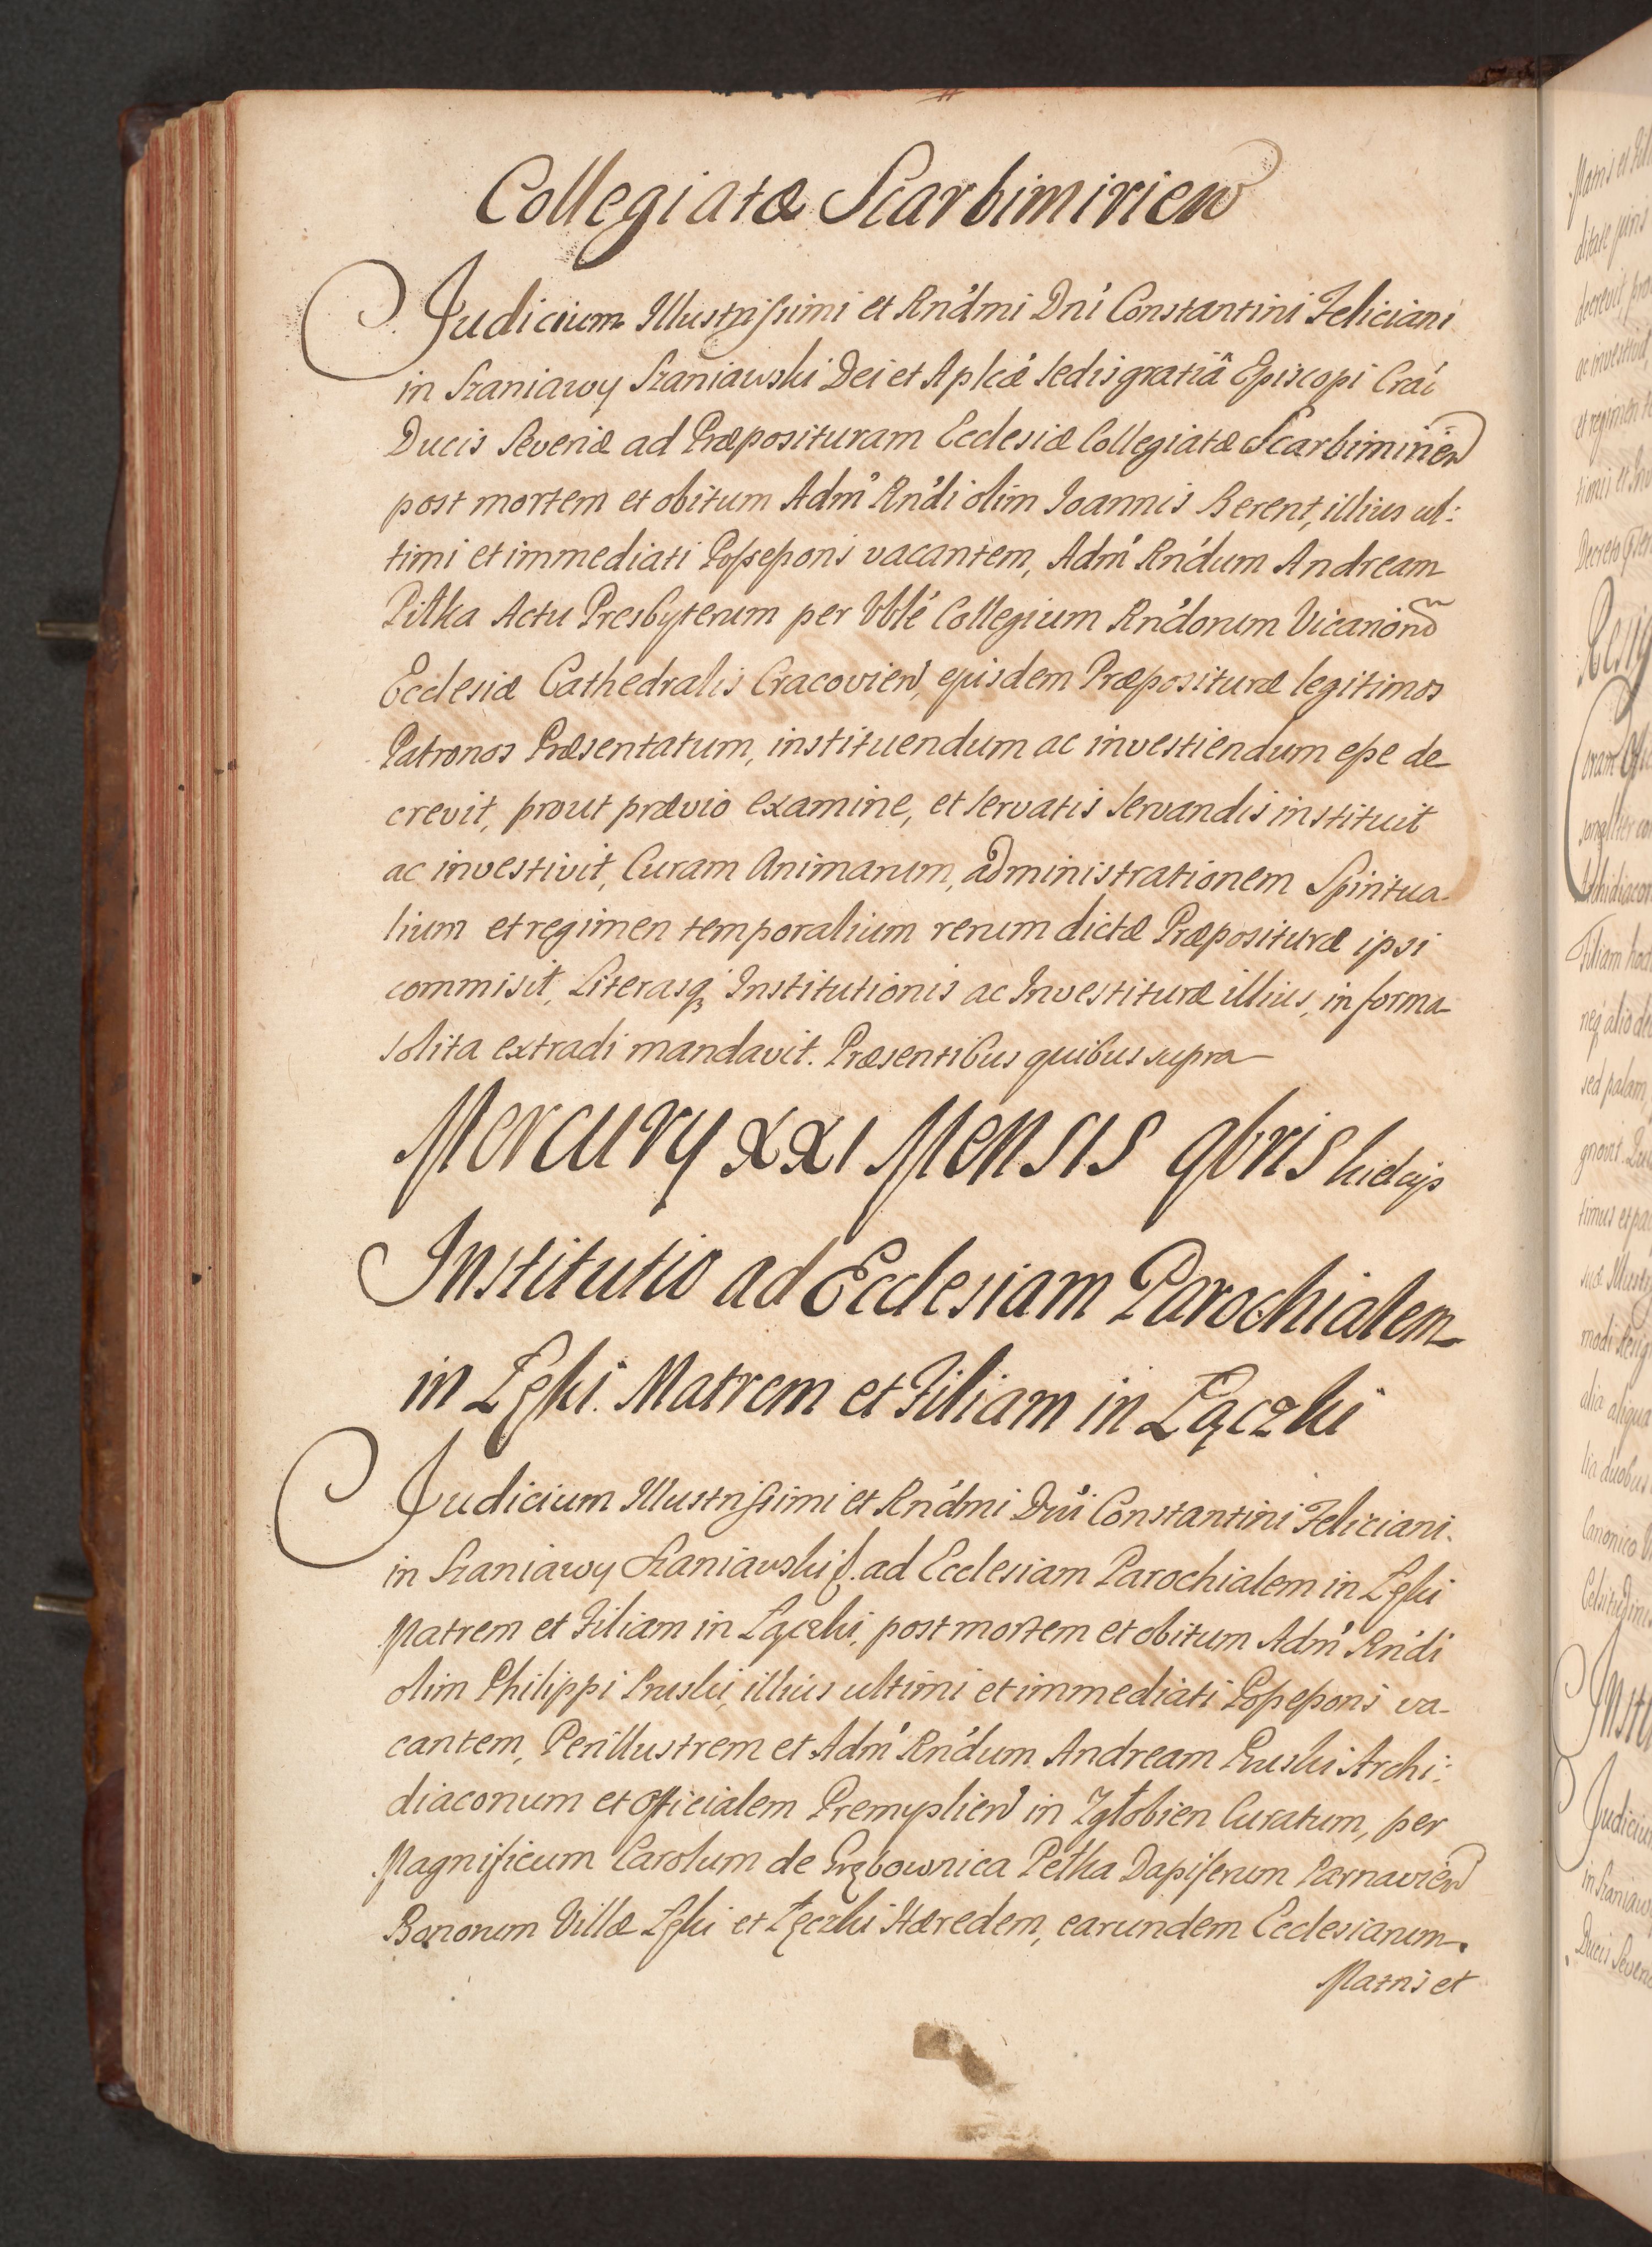 Collegiatæ Scarbimirien
Judicium Illustrissimi et Rńdmi Dńi Constantini Feliciani
in Szaniawy Szaniawski Dei et Aplcæ sedis gratiâ Episcopi Crac
Ducis Severiæ ad Præposituram Ecclesiæ Collegiatæ Scarbimirien
post mortem et obitum Adm̃ Rńdi olim Joannis Berent, illius ul:
timi et immediati Possessoris vacantem, Adm̃ Rńdum Andream
Pitka Actu Presbyterum per Vble Collegium Rńdorum Vicariorũ
Ecclesiæ Cathedralis Cracovien, ejusdem Præpositura legitimos
Patronos Præsentatum, instituendum ac investiendum esse de
crevit, prout prævio examine, et servatis servandis instituit
ac investivit, Curam Animarum, administrationem Spiritua-
lium et regimen temporalium rerum dictæ Præposituræ ipsi
commisit, Literasq Institutionis ac Investituræ illius, in forma
solita extradi mandavit. Præsentibus quibus supra
Mercury XXI Mensis 9bris
Institutio ad Ecclesiam Parochialem
in Łęki. Matrem et Filiam in Łączki
Judicium Illustrissimi et Rńdmi Dńi Constantini Feliciani.
in Szaniawy Szaniawski ad Ecclesiam Parochialem in Łęki
Matrem et Filiam in Łączki, post mortem et obitum Adm̃ Rńdi
olim Philippi Pruski, illius ultimi et immediati Possessoris va-
cantem, Perillustrem et Adm̃ Rńdum Andream Pruski Archi:
diaconum et Officialem Premyslien in Zgłobien Curatum, per
Magnificum Carolum de Grębownica Pełka Dapiferum Parnavien
Bonorum Villæ Łęki et Łęczki Hæredem, earundem Ecclesiarum
Matris et